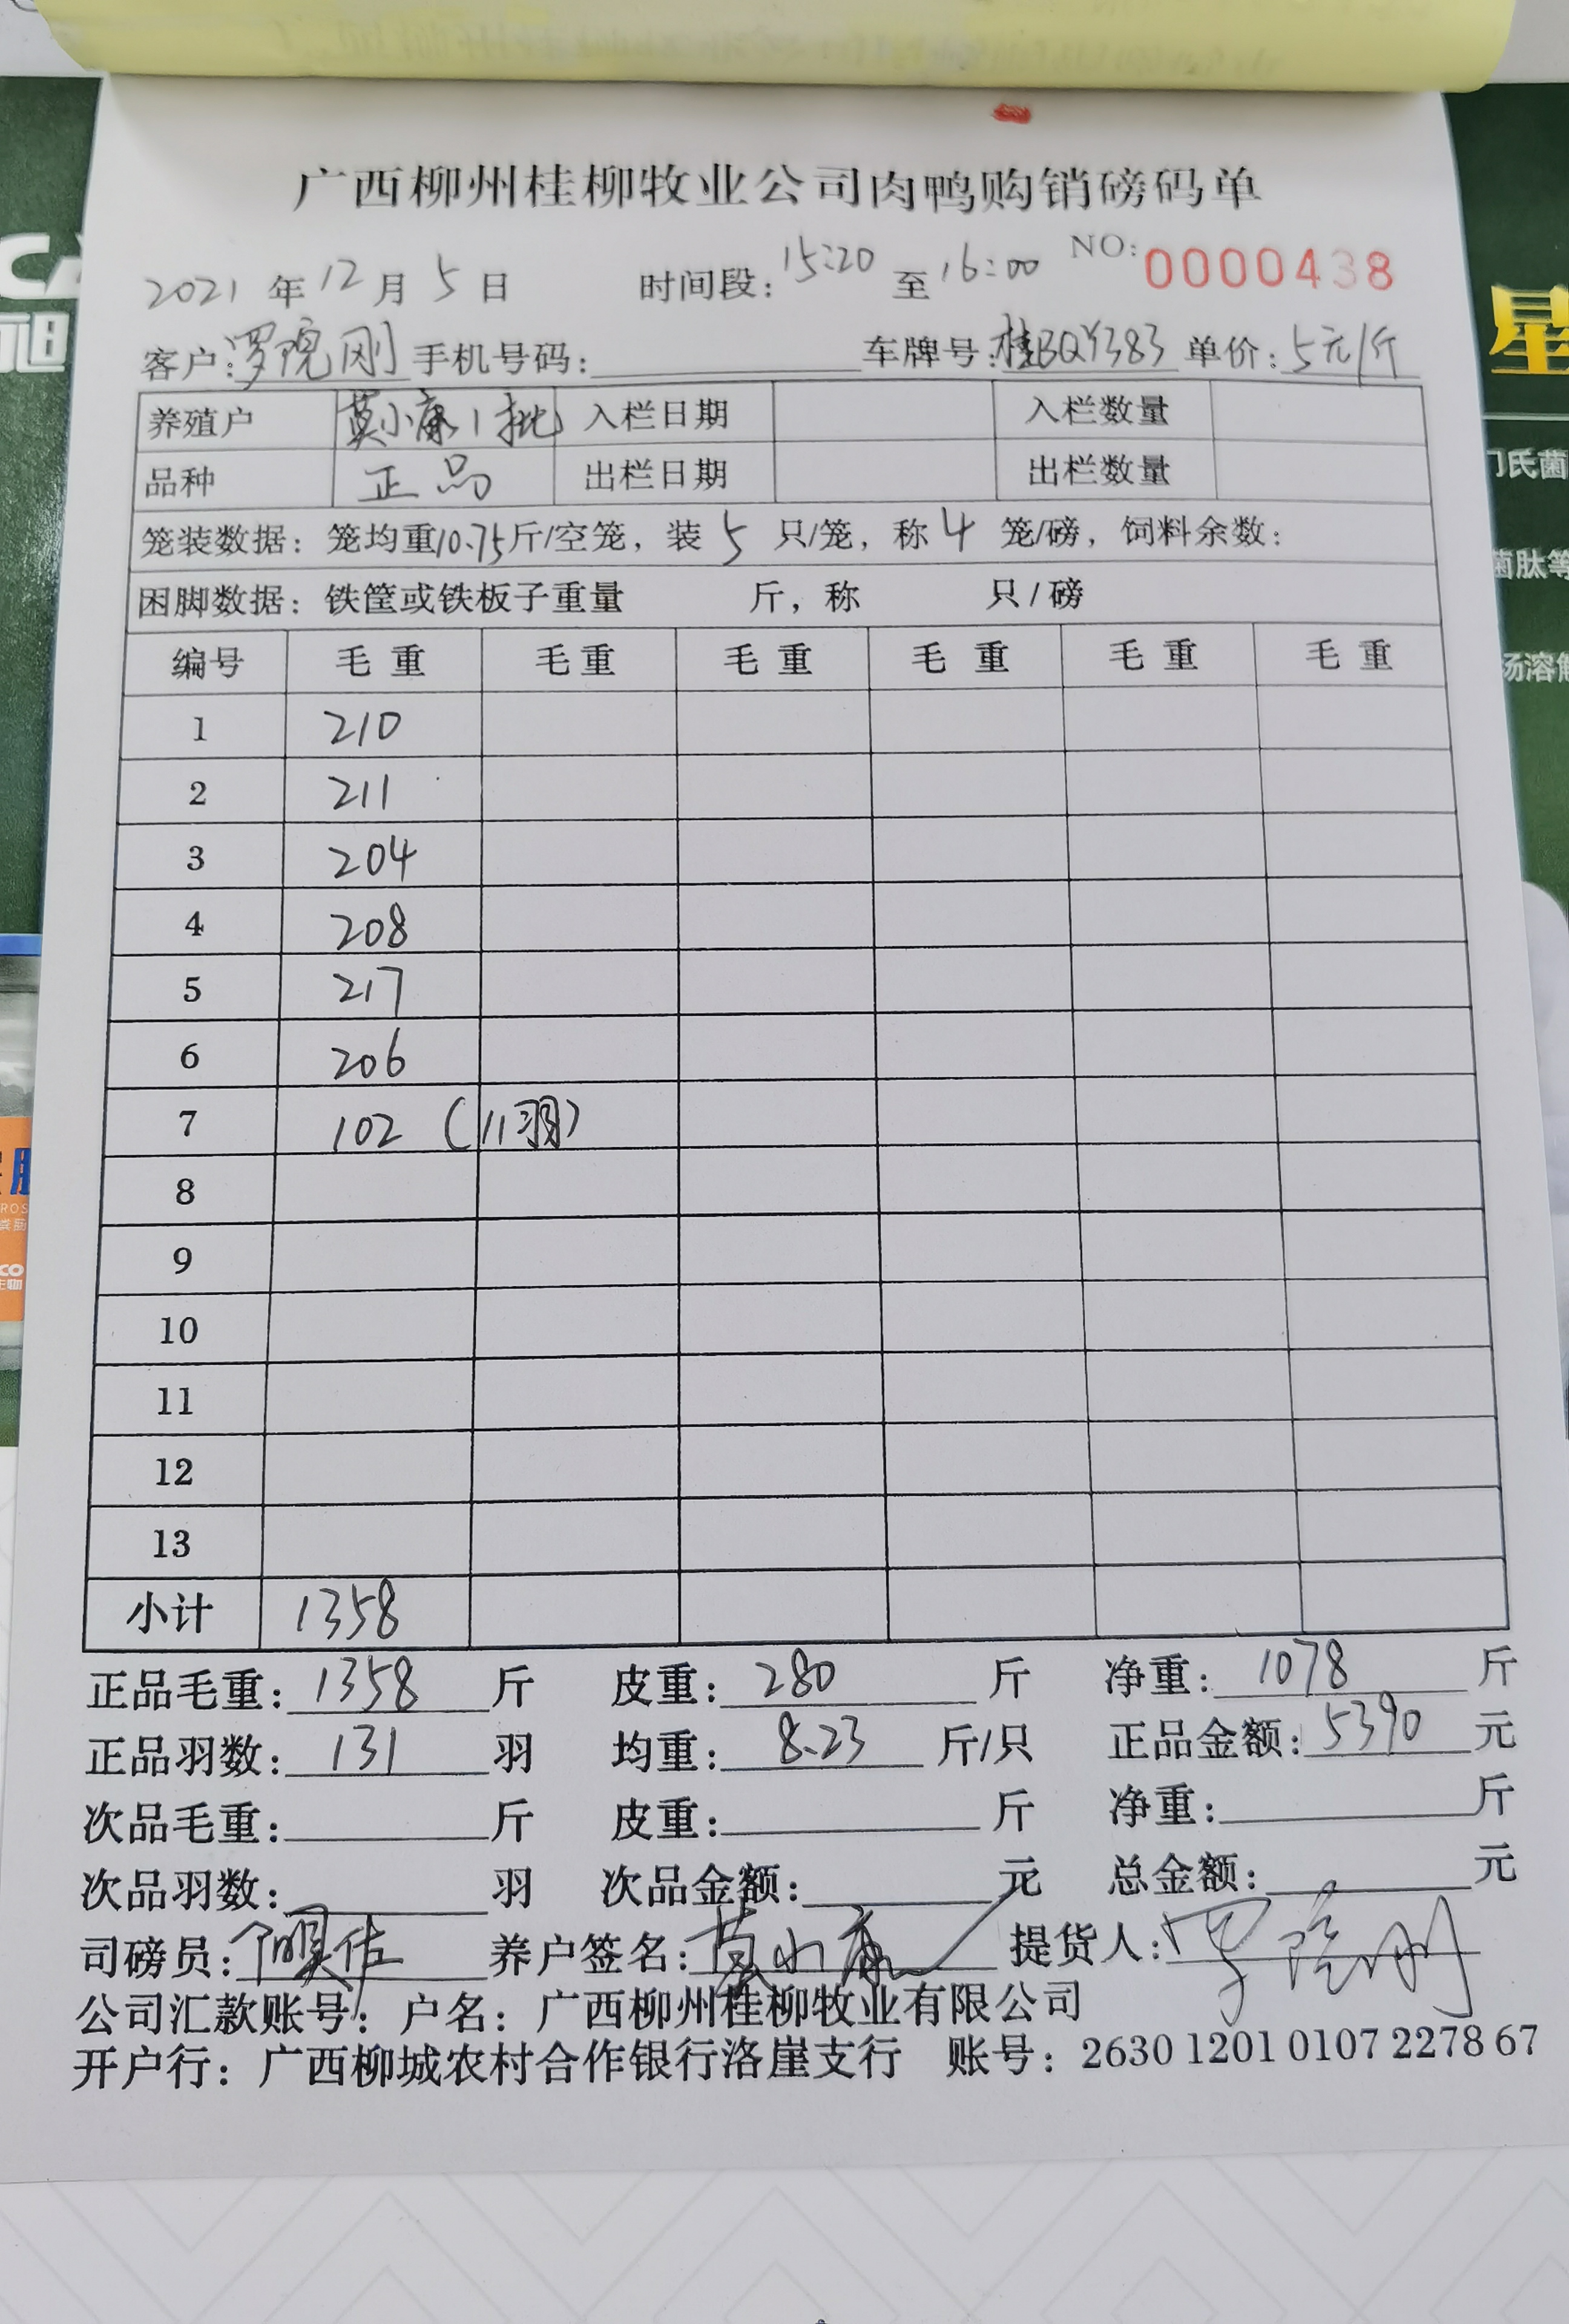 广西柳州桂柳牧业公司肉鸭购销磅码单
2021年12月5日 时间段:15:20至16:00 NO:0000438
客户:罗院刚 手机号码: 车牌号:桂BQY383 单价:5元/斤
养殖户 莫小康1批 入栏日期 入栏数量
品种 正品 出栏日期 出栏数量
笼装数据:笼均重10.75斤/空笼,装5只/笼,称4笼/磅,饲料余数:
困脚数据:铁筐或铁板子重量 斤,称 只/磅
编号 毛重 毛重 毛重 毛重 毛重 毛重
1 210
2 211
3 204
4 208
5 217
6 206
7 102(11羽)
8
9
10
11
12
13
小计 1358
正品毛重:1358斤 皮重:280斤 净重:1078斤
正品羽数:131羽 均重:8.23斤/只 正品金额:5390元
次品毛重: 斤 皮重: 斤 净重: 斤
次品羽数: 羽 次品金额: 元 总金额: 元
司磅员: 养户签名:莫小康 提货人:罗院刚
公司汇款账号:户名:广西柳州桂柳牧业有限公司
开户行:广西柳城农村合作银行洛崖支行 账号:2630 1201 0107 2278 67
星